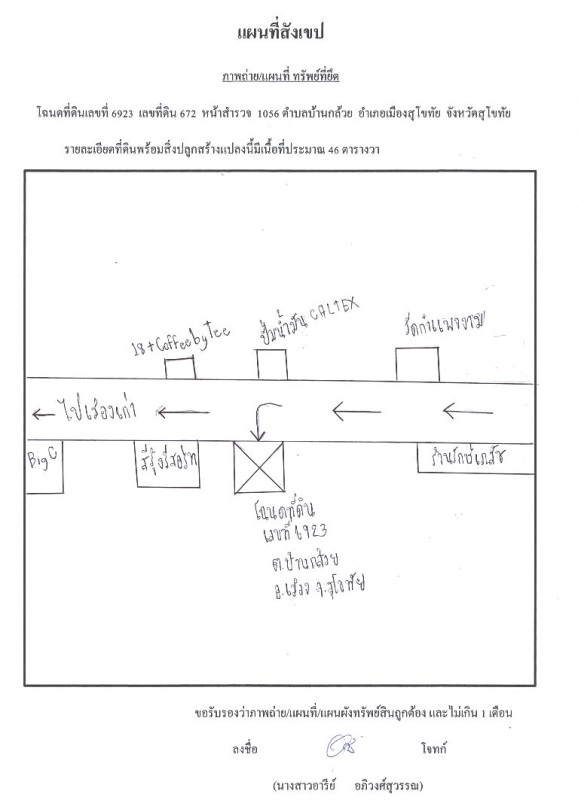 แผนที่สังเขป
ภาพถ่าย/แผนที่ ทรัพย์ที่ยึด
โฉนดที่ดินเลขที่ 6923 เลขที่ดิน 672 หน้าสำรวจ 1056 ตำบลบ้านกล้วย อำเภอเมืองสุโขทัย จังหวัดสุโขทัย
รายละเอียดที่ดินพร้อมสิ่งปลูกสร้างแปลงนี้มีเนื้อที่ประมาณ 46 ตารางวา
18+Coffee by Tee
ปั๊มน้ำมัน CALTEX
วัดกำแพงงาม
ไปเมืองเก่า
Big C
สีรุ้งรีสอร์ท
ร้านรักษ์เภสัช
โฉนดที่ดิน
เลขที่ 6923
ต.บ้านกล้วย
อ.เมือง จ.สุโขทัย
ขอรับรองว่าภาพถ่าย/แผนที่/แผนผังทรัพย์สินถูกต้อง และไม่เกิน 1 เดือน
ลงชื่อ โจทก์
(นางสาวอารีย์ อภิวงศ์สุวรรณ)